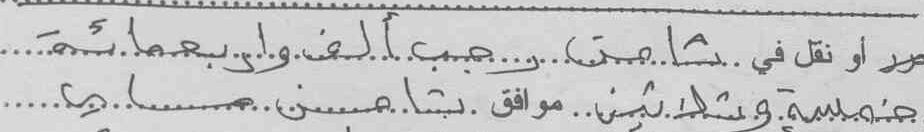 حرر أو نقل في ثامن رجب ألف وأربعمائة
خمسة وثلاثين موافق ثامن ماي